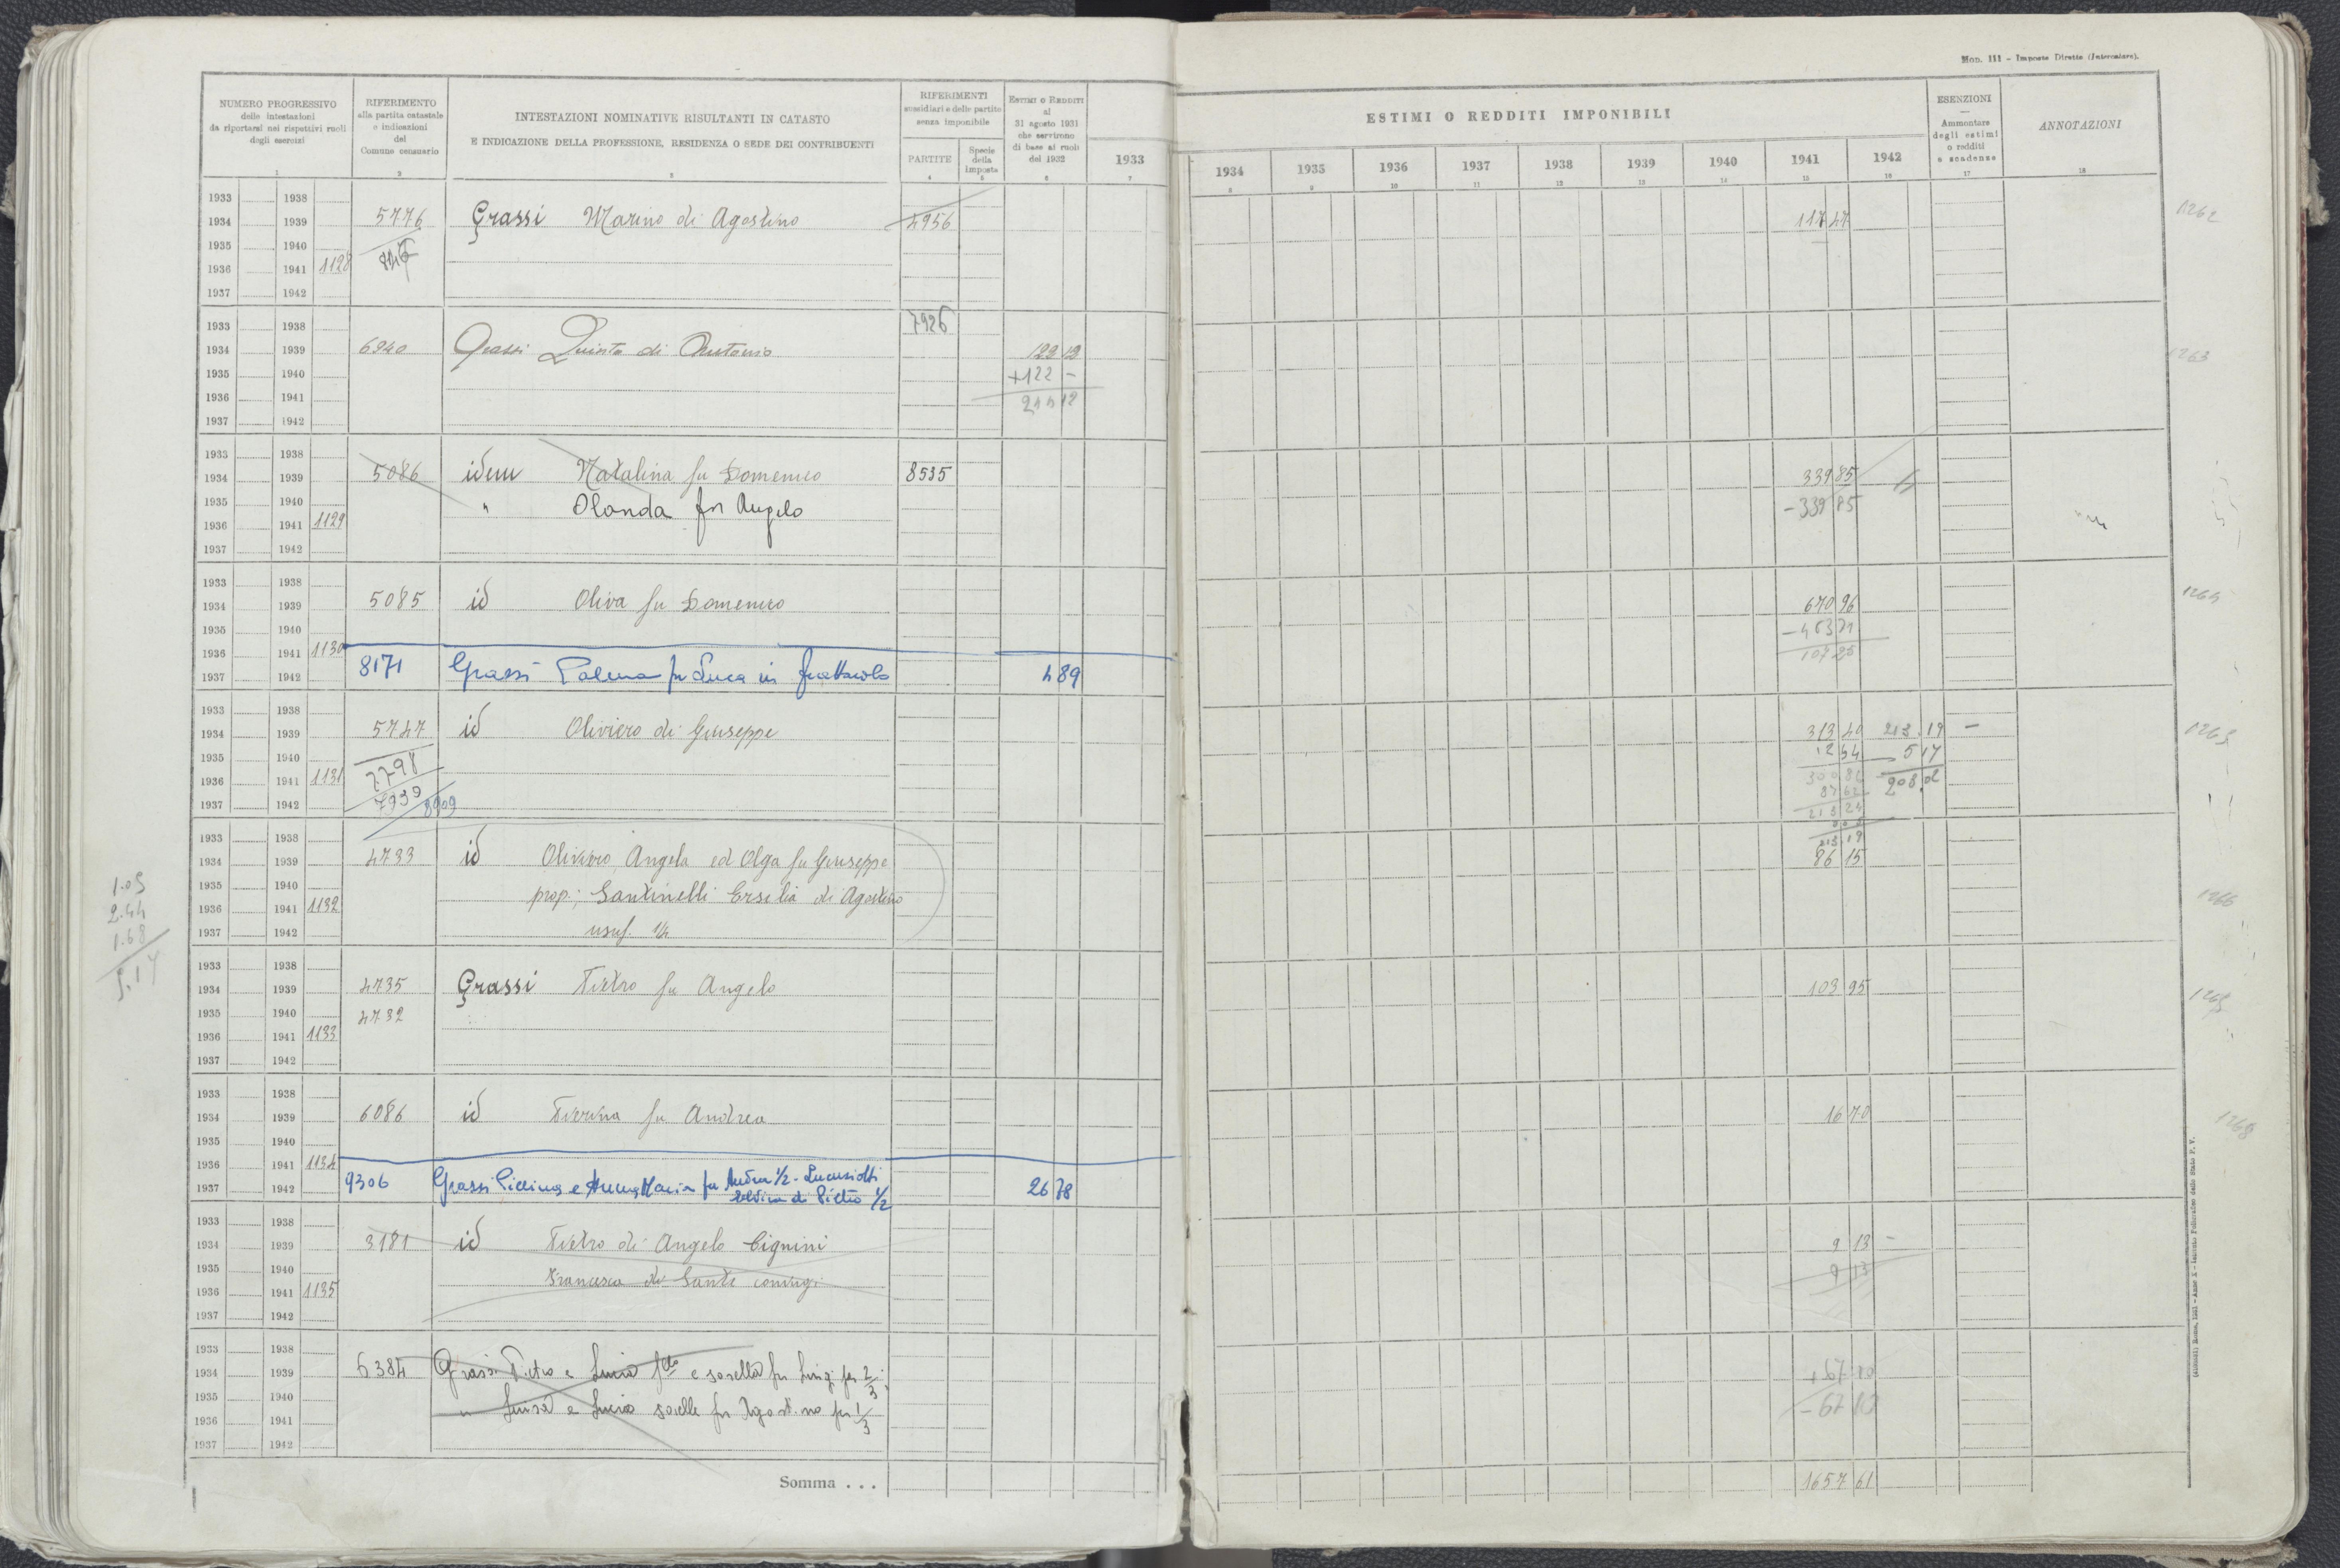 Mod. 111 - Imposte Dirette (Intercalare).
NUMERO PROGRESSIVO
delle intestazioni
da riportarsi nei rispettivi ruoli
degli esercizi
RIFERIMENTO
alla partita catastale
e indicazioni
del
Comune censuario
INTESTAZIONI NOMINATIVE RISULTANTI IN CATASTO
E INDICAZIONE DELLA PROFESSIONE, RESIDENZA O SEDE DEI CONTRIBUENTI
RIFERIMENTI
sussidiari e delle partite
senza imponibile
PARTITE
Specie
della
imposta
ESTIMI O REDDITI
al
31 agosto 1931
che servirono
di base ai ruoli
del 1932
ESTIMI O REDDITI IMPONIBILI
1933 1934 1935 1936 1937 1938 1939 1940 1941 1942
ESENZIONI
Ammontare
degli estimi
o redditi
e scadenze
ANNOTAZIONI
1 2 3 4 5 6 7 8 9 10 11 12 13 14 15 16 17 18
1933 1938
1934 1939 5776 Grassi Marino di Agostino 4956 117 47 1262
1935 1940
1936 1941 1128
1937 1942
1933 1938 7926
1934 1939 6940 Grassi Quinto di Antonio 122 12 1263
1935 1940 +122 -
1936 1941 244 12
1937 1942
1933 1938
1934 1939 5086 idem Natalina fu Domenico 8535 339 85
1935 1940 " Olanda fu Angelo - 339 85
1936 1941 1129
1937 1942
1933 1938
1934 1939 5085 id Oliva fu Domenico 670 96 1264
1935 1940
1936 1941 1130 107 25
1937 1942 8171 Grassi Palma fu Luca in 489
1933 1938
1934 1939 5747 id Oliviero di Giuseppe 313 40 213 19 - 1265
1935 1940 12 54 5 17
1936 1941 1131 7798 300 86 208 02
1937 1942 7939 8909 87 62
213 24
213 19
1933 1938
1934 1939 4733 id Oliviero, Angela ed Olga fu Giuseppe 86 15
1935 1940 prop.; Santinelli Ersilia di Agostino 1266
1936 1941 1132 usuf. 1/4
1937 1942
1.05
2.44
1.68
5.17
1933 1938
1934 1939 4735 Grassi Pietro fu Angelo 103 95
1935 1940 4732
1936 1941 1133
1937 1942
1933 1938
1934 1939 6086 id Pierina fu Andrea 16 70 1268
1935 1940
1936 1941 1134
1937 1942 9306 Grassi Pierina e Anna Maria fu Andrea 1/2 - di Pietro 1/2 26 78
1933 1938
1934 1939 3181 id Pietro di Angelo Cignini 9 13 -
1935 1940 Francesca di Sante coniugi 9 13
1936 1941 1135
1937 1942
1933 1938
1934 1939 6384 Grassi Pietro e Lucia f.llo e sorella fu Luigi per 2/3; + 67 10
1935 1940 " Luisa e Lucia sorelle fu Agostino per 1/3 - 67 10
1936 1941
1937 1942
Somma . . . 1657 61